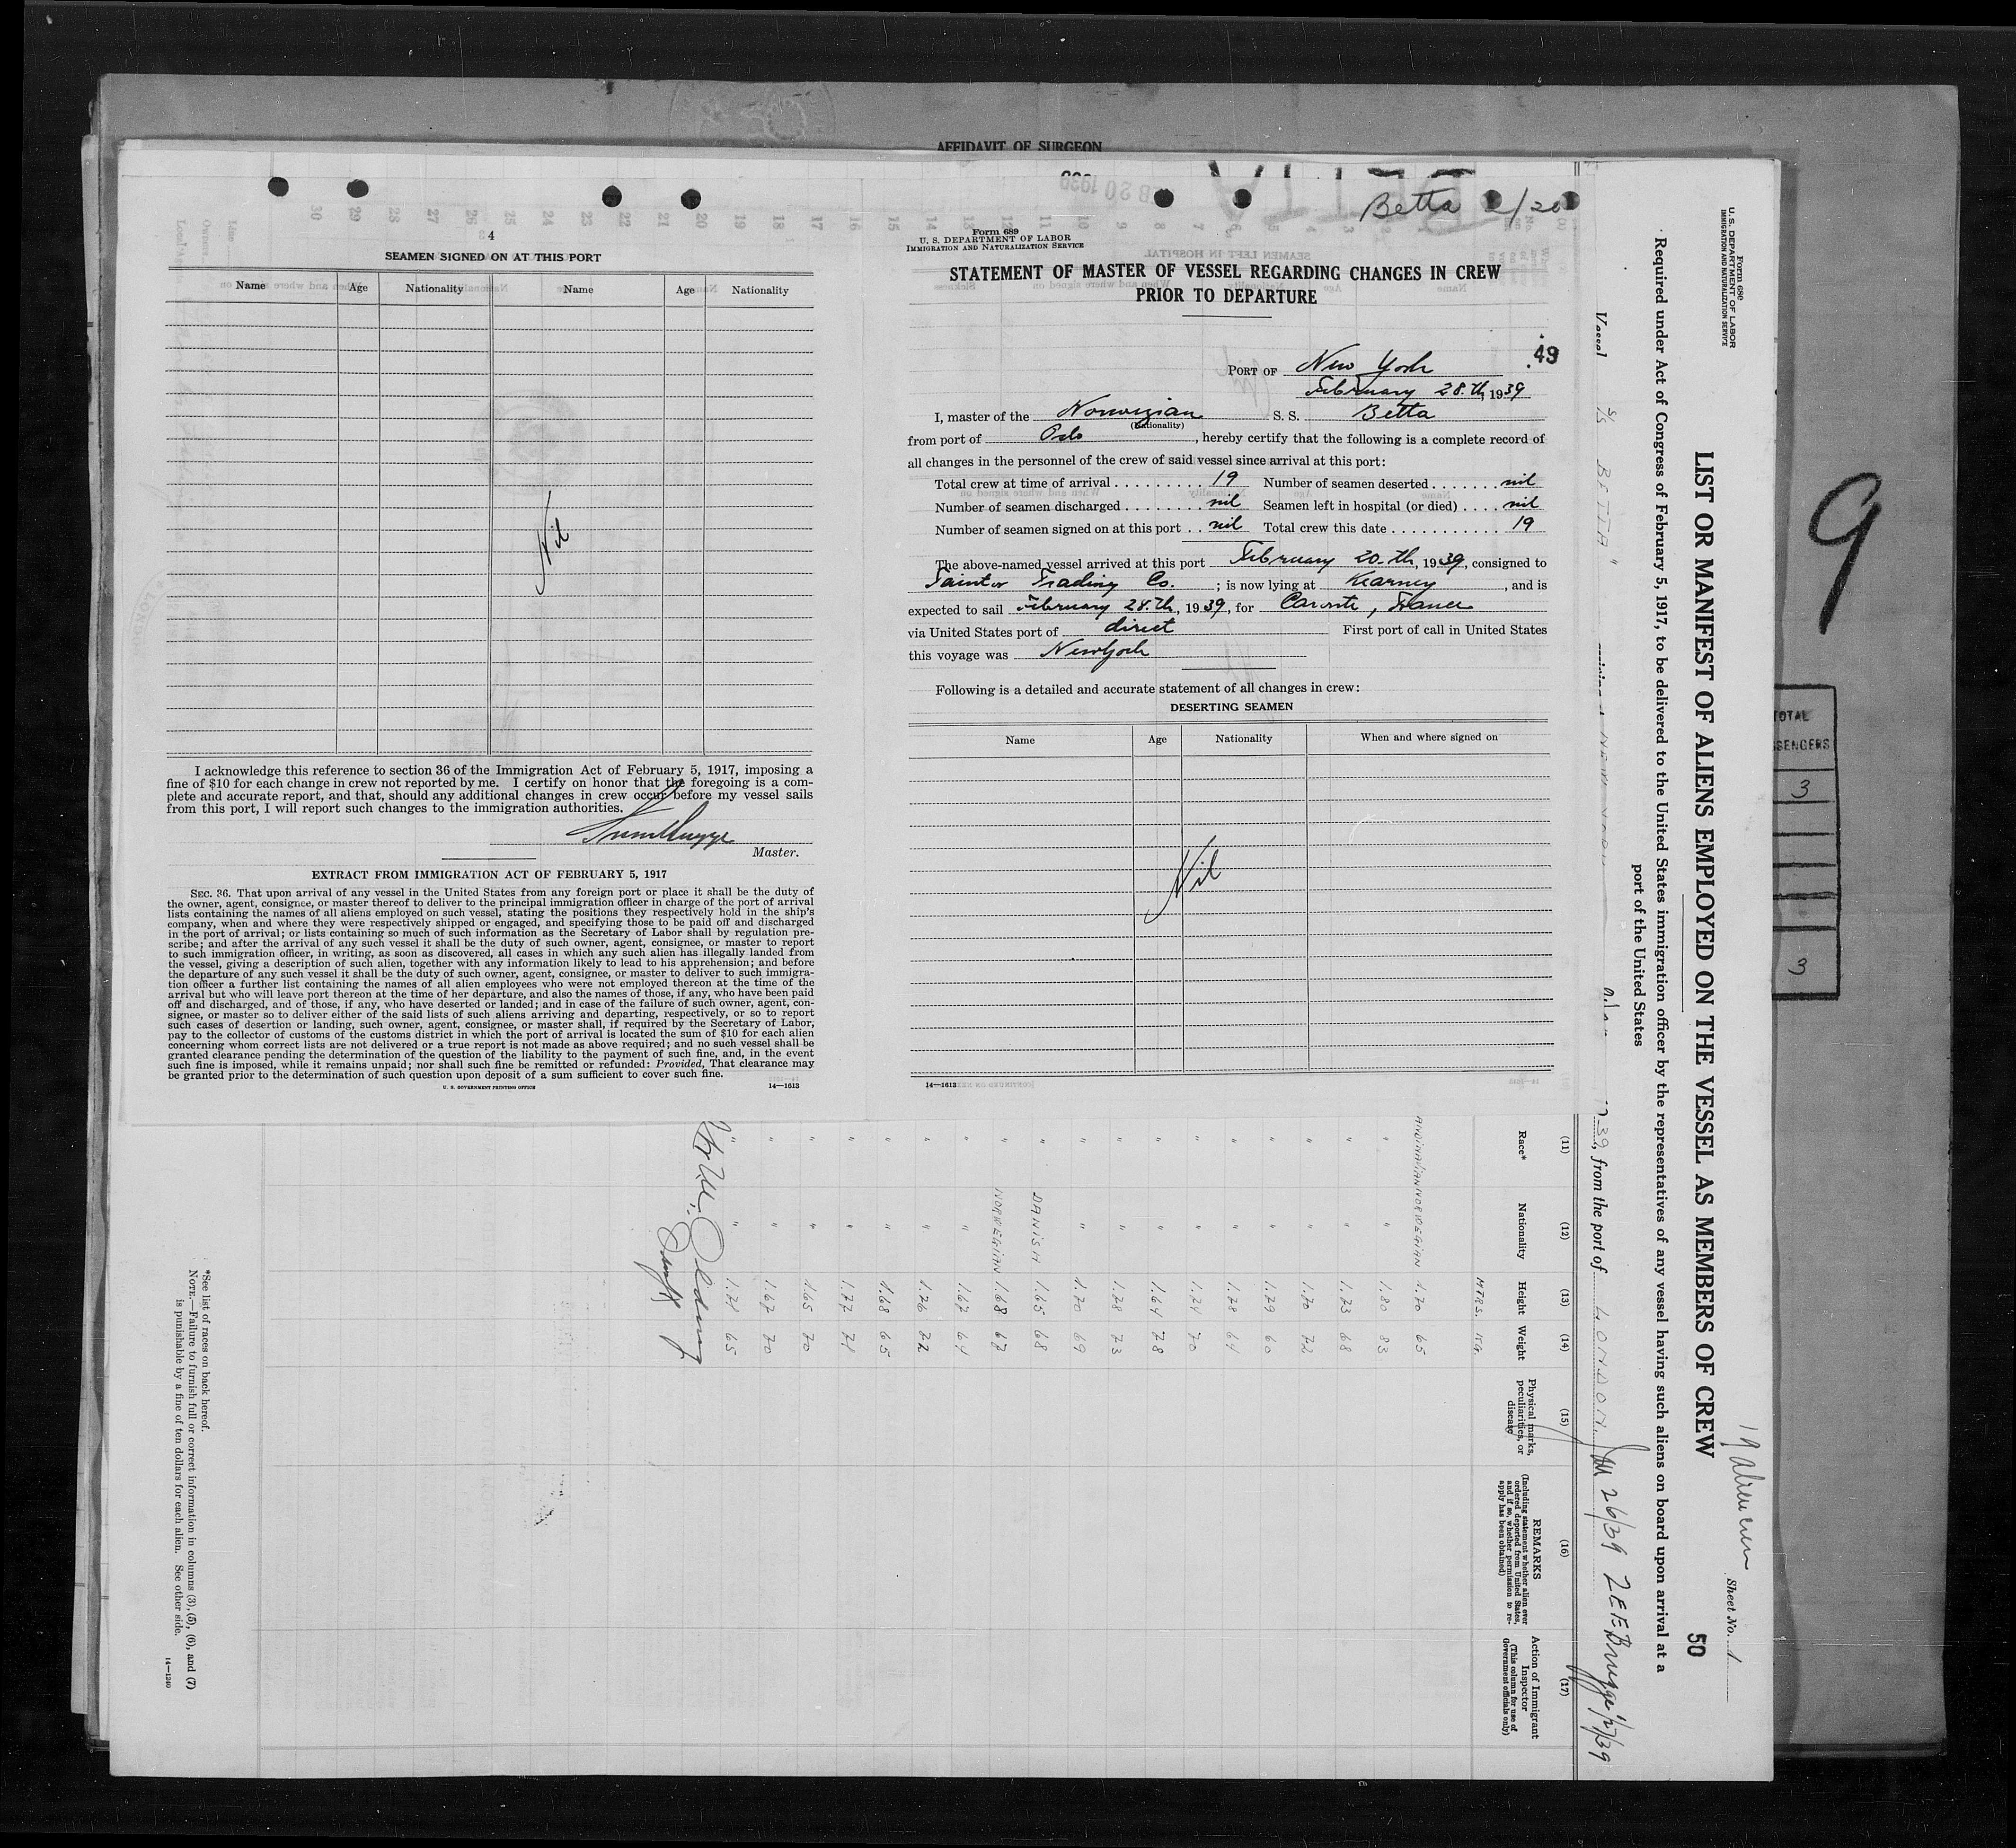 AFFIDAVIT OF SURGEON
Betta 2/20
4
SEAMEN SIGNED ON AT THIS PORT
Name Age Nationality Name Age Nationality
Nil
I acknowledge this reference to section 36 of the Immigration Act of February 5, 1917, imposing a
fine of $10 for each change in crew not reported by me. I certify on honor that the foregoing is a com-
plete and accurate report, and that, should any additional changes in crew occur before my vessel sails
from this port, I will report such changes to the immigration authorities.
Master.
EXTRACT FROM IMMIGRATION ACT OF FEBRUARY 5, 1917
SEC. 36. That upon arrival of any vessel in the United States from any foreign port or place it shall be the duty of
the owner, agent, consignee, or master thereof to deliver to the principal immigration officer in charge of the port of arrival
lists containing the names of all aliens employed on such vessel, stating the positions they respectively hold in the ship's
company, when and where they were respectively shipped or engaged, and specifying those to be paid off and discharged
in the port of arrival; or lists containing so much of such information as the Secretary of Labor shall by regulation pre-
scribe; and after the arrival of any such vessel it shall be the duty of such owner, agent, consignee, or master to report
to such immigration officer, in writing, as soon as discovered, all cases in which any such alien has illegally landed from
the vessel, giving a description of such alien, together with any information likely to lead to his apprehension; and before
the departure of any such vessel it shall be the duty of such owner, agent, consignee, or master to deliver to such immigra-
tion officer a further list containing the names of all alien employees who were not employed thereon at the time of the
arrival but who will leave port thereon at the time of her departure, and also the names of those, if any, who have been paid
off and discharged, and of those, if any, who have deserted or landed; and in case of the failure of such owner, agent, con-
signee, or master so to deliver either of the said lists of such aliens arriving and departing, respectively, or so to report
such cases of desertion or landing, such owner, agent, consignee, or master shall, if required by the Secretary of Labor,
pay to the collector of customs of the customs district in which the port of arrival is located the sum of $10 for each alien
concerning whom correct lists are not delivered or a true report is not made as above required; and no such vessel shall be
granted clearance pending the determination of the question of the liability to the payment of such fine, and, in the event
such fine is imposed, while it remains unpaid; nor shall such fine be remitted or refunded: Provided, That clearance may
be granted prior to the determination of such question upon deposit of a sum sufficient to cover such fine.
U. S. GOVERNMENT PRINTING OFFICE 14—1613
Form 689
U. S. DEPARTMENT OF LABOR
IMMIGRATION AND NATURALIZATION SERVICE
STATEMENT OF MASTER OF VESSEL REGARDING CHANGES IN CREW
PRIOR TO DEPARTURE
49
PORT OF New York
February 28.th, 1939
I, master of the Norwegian S. S. Betta
(Nationality)
from port of Oslo, hereby certify that the following is a complete record of
all changes in the personnel of the crew of said vessel since arrival at this port:
Total crew at time of arrival 19 Number of seamen deserted nil
Number of seamen discharged nil Seamen left in hospital (or died) nil
Number of seamen signed on at this port nil Total crew this date 19
The above-named vessel arrived at this port February 20.th, 1939, consigned to
Taintor Trading Co. ; is now lying at Kearney, and is
expected to sail February 28.th, 1939, for Caronte, France
via United States port of direct First port of call in United States
this voyage was New York
Following is a detailed and accurate statement of all changes in crew:
DESERTING SEAMEN
Name Age Nationality When and where signed on
Nil
14—1613
Form 689
U. S. DEPARTMENT OF LABOR
IMMIGRATION AND NATURALIZATION SERVICE
19 Alien crew Sheet No. 1
LIST OR MANIFEST OF ALIENS EMPLOYED ON THE VESSEL AS MEMBERS OF CREW
50
Required under Act of Congress of February 5, 1917, to be delivered to the United States immigration officer by the representatives of any vessel having such aliens on board upon arrival at a
port of the United States
Vessel S/S "BETTA" 1939, from the port of LONDON Jan 26/39 ZEEBrugge 1/27/39
(11) (12) (13) (14) (15) (16) (17)
Race* Nationality Height Weight Physical marks, peculiarities, or disease REMARKS (Including statement whether alien ever ordered deported from United States, and if so, whether permission to re-apply has been obtained) Action of Immigrant Inspector (This column for use of Government officials only)
MTRS. KG.
NORWEGIAN 1.70 65
" " 1.80 83
" " 1.73 68
" " 1.70 72
" " 1.79 60
" " 1.78 64
" " 1.74 70
" " 1.64 78
" " 1.78 73
" " 1.70 69
" DANISH 1.65 68
" NORWEGIAN 1.68 67
" " 1.67 64
" " 1.76 72
" " 1.68 65
" " 1.77 71
" " 1.65 70
" " 1.67 70
" " 1.71 65
*See list of races on back hereof.
NOTE.—Failure to furnish full or correct information in columns (3), (5), (6), and (7)
is punishable by a fine of ten dollars for each alien. See other side.
14—1240
9
TOTAL
3
3